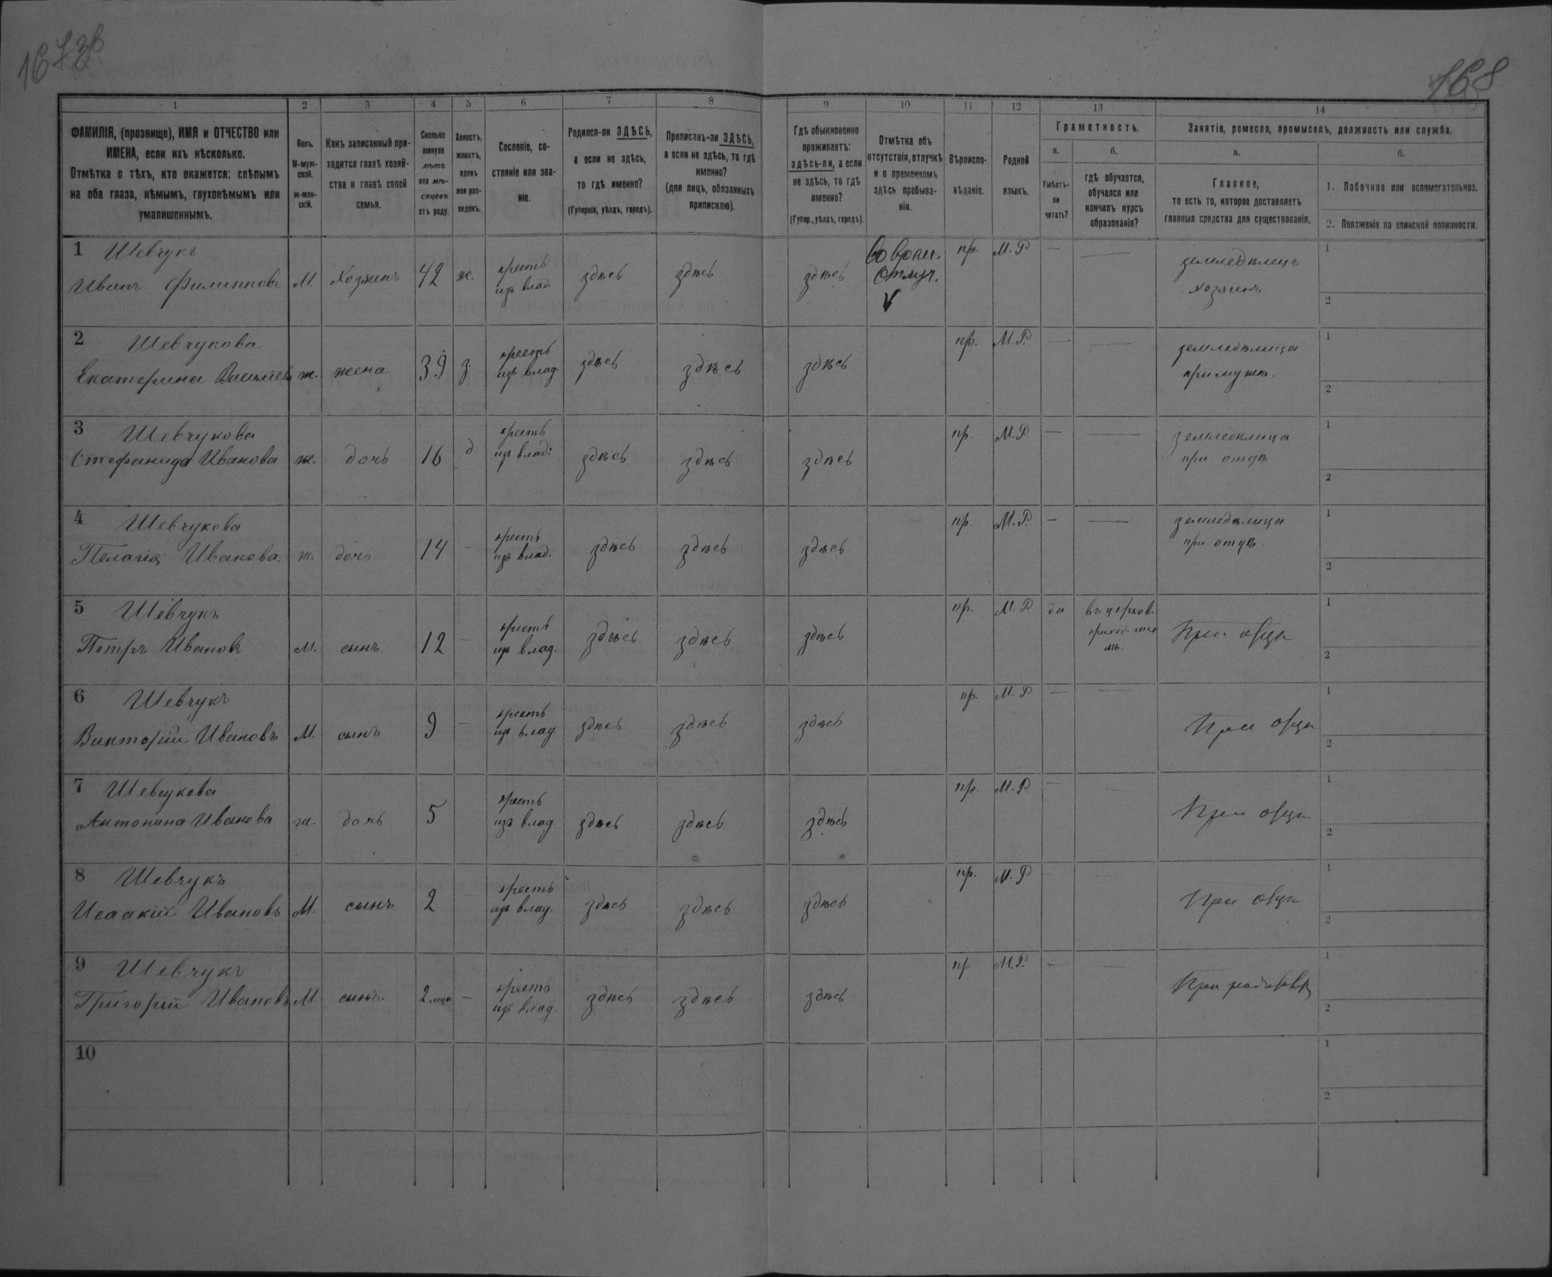 167 об.
168
1
2
3
4
5
6
7
8
9
10
11
12
13
14
ФАМИЛІЯ, (прозвище), ИМЯ и ОТЧЕСТВО или
ИМЕНА, если ихъ нѣсколько.
Отмѣтка о тѣхъ, кто окажется: слѣпымъ
на оба глаза, нѣмымъ, глухонѣмымъ или
умалишеннымъ.
Полъ.
М-муж-
ской.
ж-жен-
скій.
Какъ записанный при-
ходится главѣ хозяй-
ства и главѣ своей
семьи.
Сколько
минуло
лѣтъ
или мѣ-
сяцевъ
отъ роду.
Холостъ,
женатъ,
вдовъ
или раз-
веденъ.
Сословіе, со-
стояніе или зва-
ніе.
Родился-ли ЗДѢСЬ,
а если не здѣсь,
то гдѣ именно?
(Губернія, уѣздъ, городъ).
Приписанъ-ли ЗДѢСЬ,
а если не здѣсь, то гдѣ
именно?
(для лицъ, обязанныхъ
припискою).
Гдѣ обыкновенно
проживаетъ:
здѣсь-ли, а если
не здѣсь, то гдѣ
именно?
(Губер., уѣздъ, городъ).
Отмѣтка объ
отсутствіи, отлучкѣ
и о временномъ
здѣсь пребыва-
ніи.
Вѣроиспо-
вѣданіе.
Родной
языкъ.
Грамотность.
а.
Умѣетъ-
ли
читать?
б.
гдѣ обучается,
обучался или
кончилъ курсъ
образованія?
Занятіе, ремесло, промыселъ, должность или служба.
а.
Главное,
то есть то, которое доставляетъ
главныя средства для существованія.
б.
1. Побочное или вспомогательное.
2. Положеніе по воинской повинности.
1 Шевчукъ
Иванъ Филипповъ М. хозяинъ 42 ж. крестъ изъ влад здѣсь здѣсь здѣсь Во врем. отлуч. пр. М.Р — — земледѣлецъ хозяинъ 1 2
2 Шевчукова
Екатерина Васильев ж. жена 39 з. крестъ изъ влад здѣсь здѣсь здѣсь пр. М.Р. — — земледѣлица при мужѣ. 1 2
3 Шевчукова
Стефанида Иванова ж. дочь 16 д крестъ изъ влад. здѣсь здѣсь здѣсь пр. М.Р — — земледѣлица при отцѣ 1 2
4 Шевчукова
Пелагія Иванова ж. дочь 14 — крестъ изъ влад. здѣсь здѣсь здѣсь пр. М.Р. — — земледѣлица при отцѣ 1 2
5 Шевчукъ
Петръ Ивановъ м. сынъ 12 — крестъ изъ влад. здѣсь здѣсь здѣсь пр. М.Р да въ церков. приход. При отцѣ 1 2
6 Шевчукъ
Викторій Ивановъ М. сынъ 9 — крестъ изъ влад здѣсь здѣсь здѣсь пр. М.Р — — При отцѣ 1 2
7 Шевчукова
Антонина Иванова ж. дочь 5 крестъ изъ влад. здѣсь здѣсь здѣсь пр. М.Р. — — При отцѣ 1 2
8 Шевчукъ
Исаакій Ивановъ М. сынъ 2 крестъ изъ влад. здѣсь здѣсь здѣсь пр. М.Р При отцѣ 1 2
9 Шевчукъ
Григорій Ивановъ М сынъ 2 мѣс — крестъ изъ влад здѣсь здѣсь здѣсь пр М.Р. — — При 1 2
10 1 2